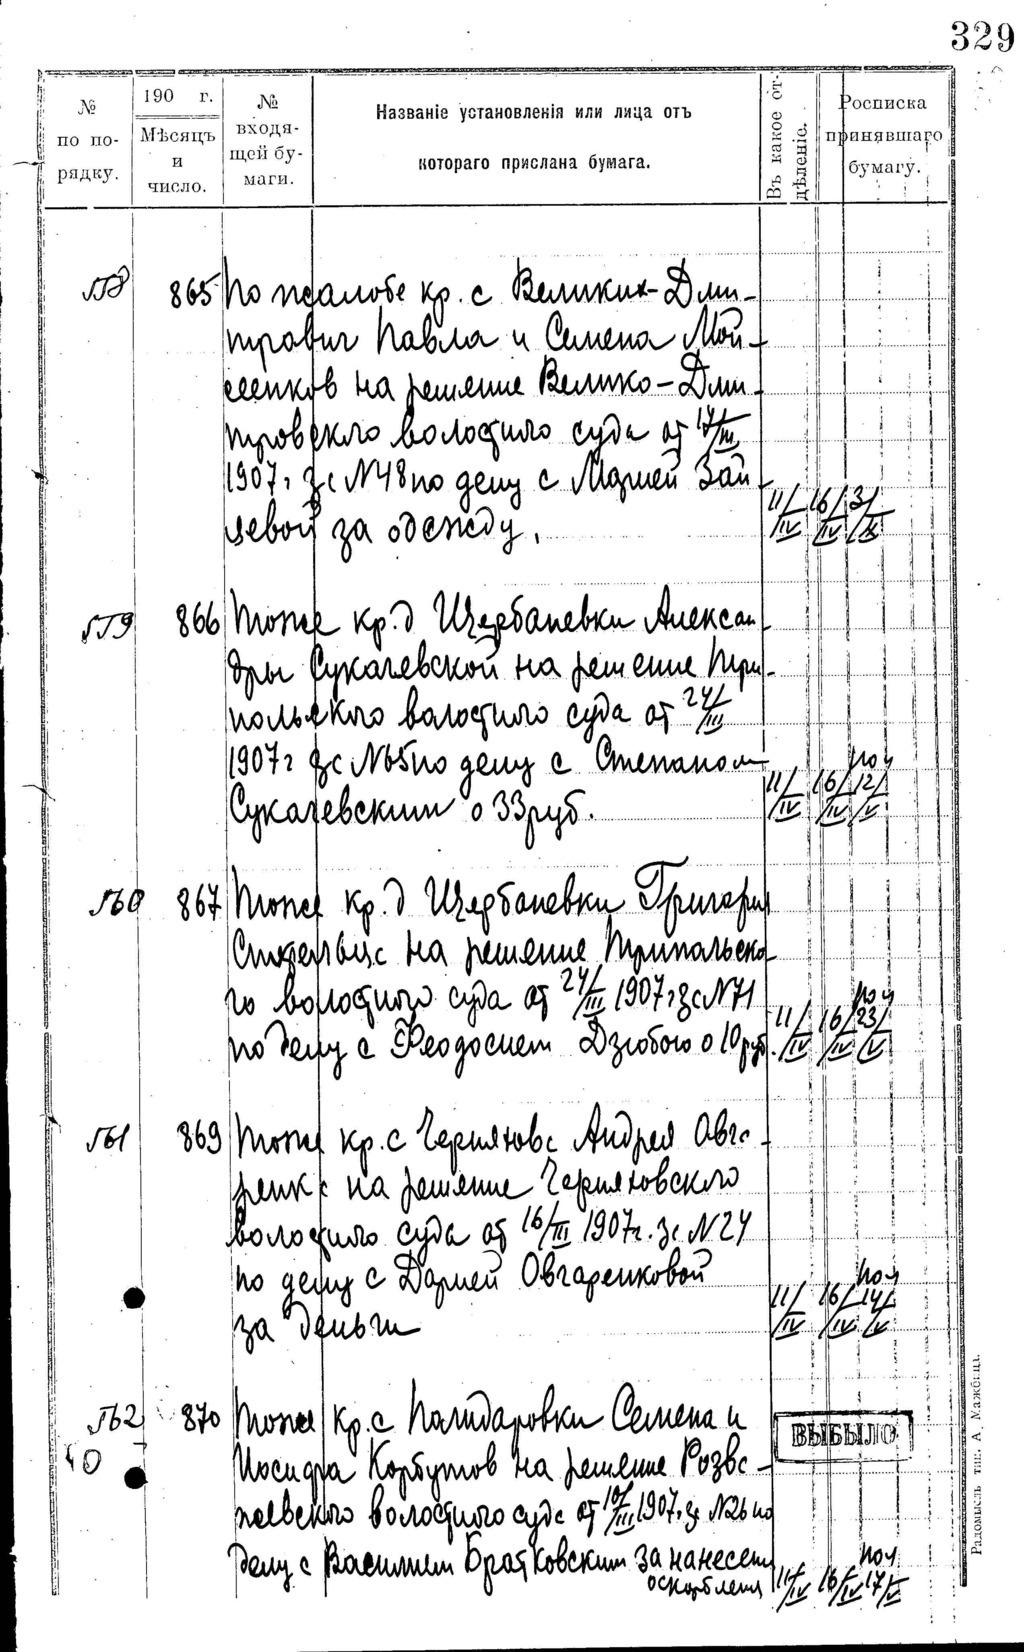 329
№ по порядку.
190 г.
Мѣсяцъ и число.
№ входящей бумаги.
Названіе установленія или лица отъ котораго прислана бумага.
Въ какое отдѣленіе.
Росписка принявшаго бумагу.
558 865 По жалобе кр. с Великих-Дми-
трович Павла и Семена Мой-
сеенков на решение Велико-Дми-
тровского волостного суда от 17/III
1907 г за N 48 по делу с Марией Зай-
цевой за одежду. 11/IV 16/IV 3/IX
559 866 Тоже кр. д Щербаневки Алексан-
дры Сукачевской на решение Три-
польского волостного суда от 24/III
1907 г за N 65 по делу с Степаном пол
Сукачевским о 33 руб. 11/IV 16/IV 12/V
560 867 Тоже кр. д Щербаневки Григория
на решение Трипольско-
го волостного суда от 24/III 1907 г за N 71 пол
по делу с Феодосием Дзюбою о 10 руб. 11/IV 16/IV 23/V
561 869 Тоже кр. с Черняхова Андрея Овга-
ренка на решение Черняховского
волостного суда от 16/III 1907 г. за N 24
по делу с Дарией Овгаренковой пол
за деньги 11/IV 16/IV 14/V
562 870 Тоже кр. с Халидаровки Семена и
ВЫБЫЛО
40 Иосифа Корбутов на решение Розва-
жевского волостного суда от 10/III 1907 г за N 26 по
делу с Василием Братковским за нанесение пол
оскорбления 11/IV 16/IV 17/V
Радомысль тип. А. Мажбица.